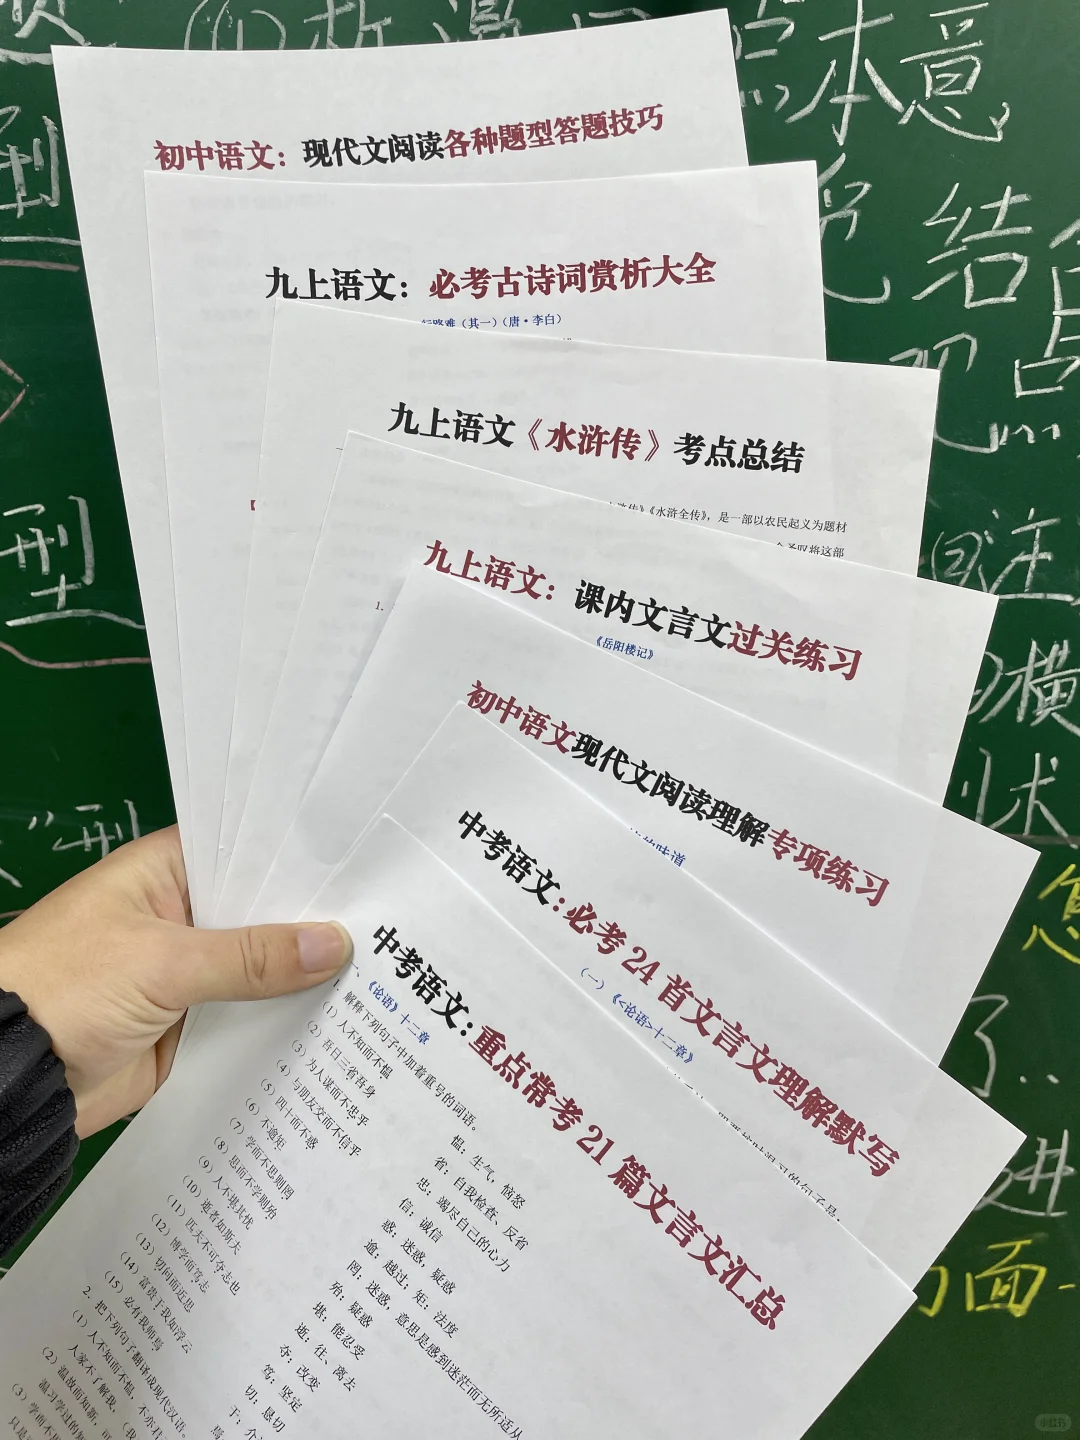 点本意,
型
结
型
注
横
述
"型
怎
了..
进
面-
初中语文：现代文阅读各种题型答题技巧
九上语文：必考古诗词赏析大全
行路难（其一）（唐·李白）
九上语文《水浒传》考点总结
《水浒全传》，是一部以农民起义为题材
将这部
九上语文：课内文言文过关练习
《岳阳楼记》
1.
初中语文现代文阅读理解专项练习
的味道
中考语文：必考24首文言文理解默写
（一）《<论语>十二章》
中考语文：重点常考21篇文言文汇总
一、《论语》十二章
1. 解释下列句子中加着重号的词语。
（1）人不知而不愠 愠：生气，恼怒
（2）吾日三省吾身 省：自我检查、反省
（3）为人谋而不忠乎 忠：竭尽自己的心力
（4）与朋友交而不信乎 信：诚信
（5）四十而不惑 惑：迷惑，疑惑
（6）不逾矩 逾：越过；矩：法度
（7）学而不思则罔 罔：迷惑，意思是感到迷茫而无所适从
（8）思而不学则殆 殆：疑惑
（9）人不堪其忧 堪：能忍受
（10）逝者如斯夫 逝：往、离去
（11）匹夫不可夺志也 夺：改变
（12）博学而笃志 笃：坚定
（13）切问而近思 切：恳切
（14）富贵于我如浮云 于：介
（15）必有我师焉 焉
2. 把下列句子翻译成现代汉语。
（1）人不知而不愠，不亦君
人家不了解我，（我
（2）温故而知新，可
温习学过的
（3）学而不思
只是
小红书